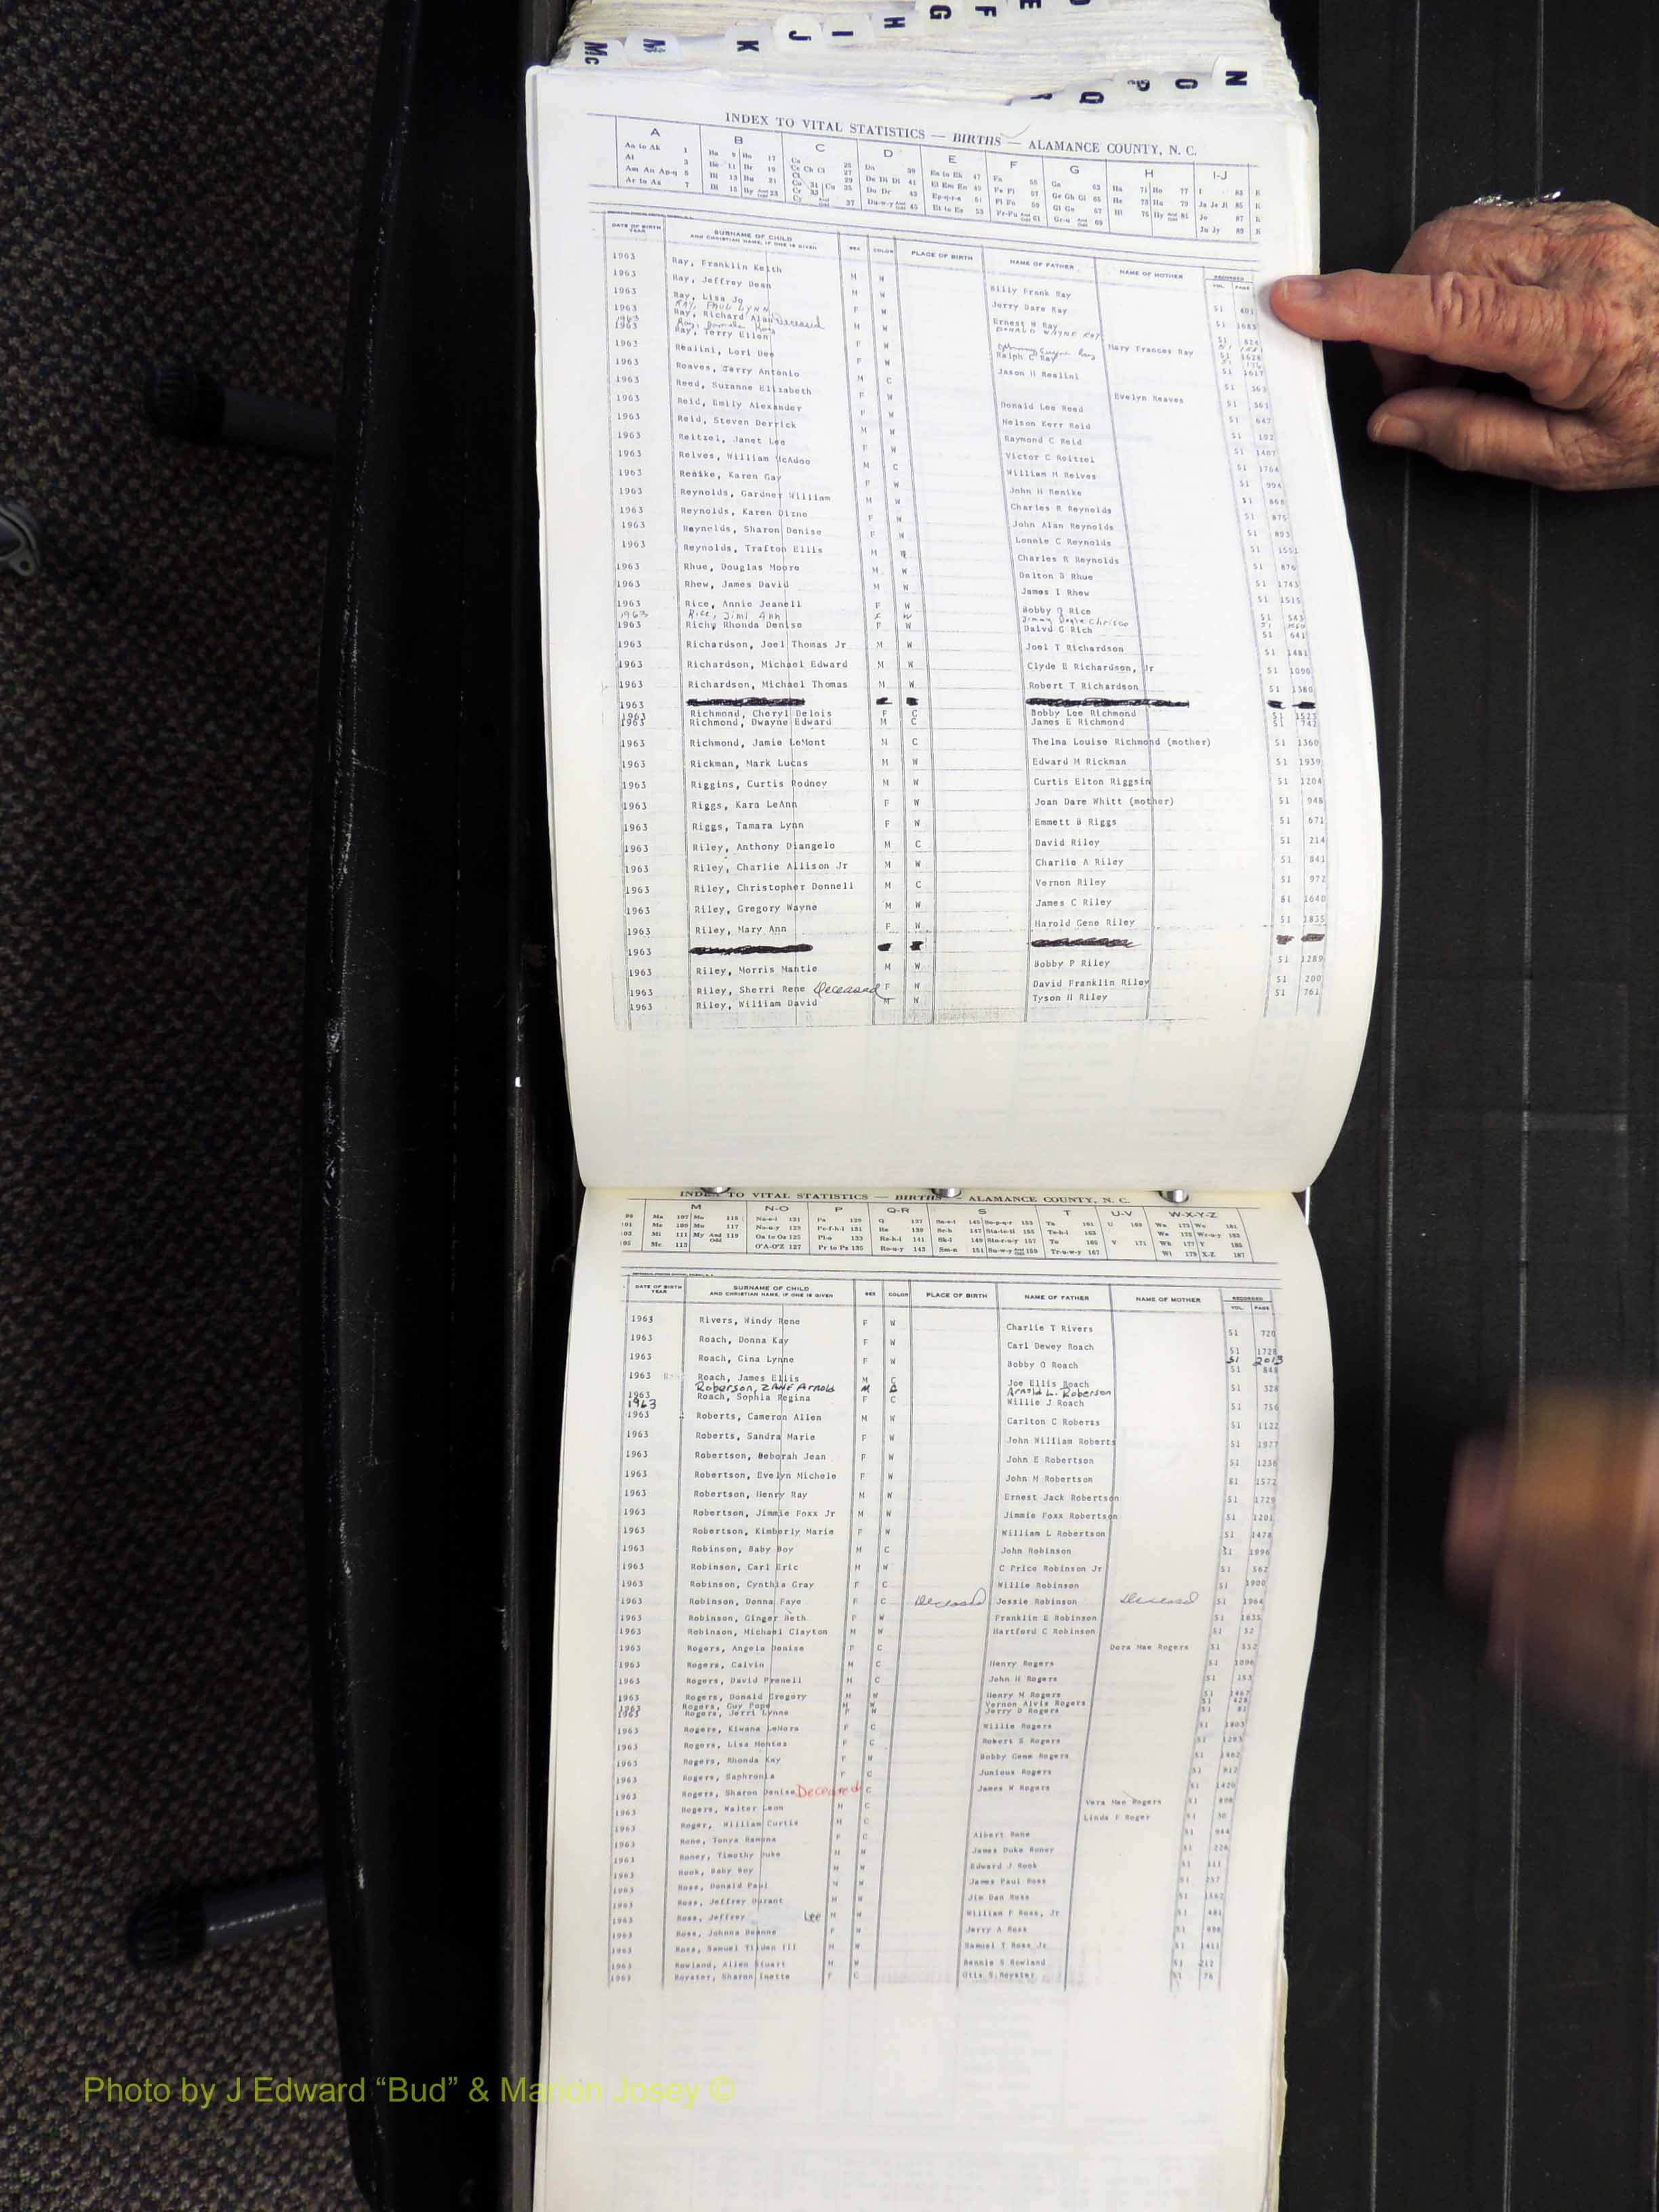 Mc M K J I H G F E D
R Q P O N
INDEX TO VITAL STATISTICS — BIRTHS — ALAMANCE COUNTY, N. C.
A B C D E F G H I-J
DATE OF BIRTH YEAR SURNAME OF CHILD AND CHRISTIAN NAME, IF ONE IS GIVEN SEX COLOR PLACE OF BIRTH NAME OF FATHER NAME OF MOTHER RECORDED VOL. PAGE
1963 Ray, Franklin Keith M W Billy Frank Ray 51 401
1963 Ray, Jeffrey Dean M W Jerry Dare Ray 51 1685
1963 Ray, Lisa Jo F W Ernest W Ray 51 824
RAY, PAUL LYNN DONALD WAYNE RAY
1963 Ray, Richard Alan Deceased M W Mary Frances Ray 51 1628
1963 Ray, Terry Ellen F W Ralph C Ray 51 1617
1963 Realini, Lori Dee F W Jason H Realini 51 363
1963 Reaves, Jerry Antonio M C Evelyn Reaves 51 361
1963 Reed, Suzanne Elizabeth F W Donald Lee Reed 51 647
1963 Reid, Emily Alexander F W Nelson Kerr Reid 51 192
1963 Reid, Steven Derrick M W Raymond C Reid 51 1407
1963 Reitzel, Janet Lee F W Victor C Reitzel 51 1764
1963 Reives, William McAdoo M C William M Reives 51 994
1963 Renike, Karen Gay F W John H Renike 51 868
1963 Reynolds, Gardner William M W Charles R Reynolds 51 875
1963 Reynolds, Karen Dizne F W John Alan Reynolds 51 893
1963 Reynolds, Sharon Denise F W Lonnie C Reynolds 51 1551
1963 Reynolds, Trafton Ellis M W Charles R Reynolds 51 876
1963 Rhue, Douglas Moore M W Dalton B Rhue 51 1743
1963 Rhew, James David M W James I Rhew 51 1515
1963 Rice, Annie Jeanell F W Bobby O Rice 51 543
1963 Rice, Jimi Ann F W Jimmy Doyle Chrisco 51
1963 Rich, Rhonda Denise F W Daivd G Rich 51 641
1963 Richardson, Joel Thomas Jr M W Joel T Richardson 51 1481
1963 Richardson, Michael Edward M W Clyde E Richardson, Jr 51 1090
1963 Richardson, Michael Thomas M W Robert T Richardson 51 1380
1963
1963 Richmond, Cheryl Delois F C Bobby Lee Richmond 51 1523
1963 Richmond, Dwayne Edward M C James E Richmond 51 1742
1963 Richmond, Jamie LeMont M C Thelma Louise Richmond (mother) 51 1360
1963 Rickman, Mark Lucas M W Edward M Rickman 51 1939
1963 Riggins, Curtis Rodney M W Curtis Elton Riggsin 51 1204
1963 Riggs, Kara LeAnn F W Joan Dare Whitt (mother) 51 948
1963 Riggs, Tamara Lynn F W Emmett B Riggs 51 671
1963 Riley, Anthony Diangelo M C David Riley 51 214
1963 Riley, Charlie Allison Jr M W Charlie A Riley 51 841
1963 Riley, Christopher Donnell M C Vernon Riley 51 972
1963 Riley, Gregory Wayne M W James C Riley 51 1640
1963 Riley, Mary Ann F W Harold Gene Riley 51 1835
1963
1963 Riley, Morris Mantle M W Bobby P Riley 51 1289
1963 Riley, Sherri Rene Deceased F W David Franklin Riley 51 200
1963 Riley, William David M W Tyson H Riley 51 761
INDEX TO VITAL STATISTICS — BIRTHS — ALAMANCE COUNTY, N. C.
M N-O P Q-R S T U-V W-X-Y-Z
DATE OF BIRTH YEAR SURNAME OF CHILD AND CHRISTIAN NAME, IF ONE IS GIVEN SEX COLOR PLACE OF BIRTH NAME OF FATHER NAME OF MOTHER RECORDED VOL. PAGE
1963 Rivers, Windy Rene F W Charlie T Rivers 51 720
1963 Roach, Donna Kay F W Carl Dewey Roach 51 1728
51 2013
1963 Roach, Gina Lynne F W Bobby O Roach 51 848
1963 Roach, James Ellis M C Joe Ellis Roach 51 328
Roberson, ZANE Arnold M Arnold L. Roberson
1963 Roach, Sophia Regina F C Willie J Roach 51 756
1963
1963 Roberts, Cameron Allen M W Carlton C Roberts 51 1122
1963 Roberts, Sandra Marie F W John William Roberts 51 1977
1963 Robertson, Deborah Jean F W John E Robertson 51 1236
1963 Robertson, Evelyn Michele F W John M Robertson 51 1572
1963 Robertson, Henry Ray M W Ernest Jack Robertson 51 1729
1963 Robertson, Jimmie Foxx Jr M W Jimmie Foxx Robertson 51 1201
1963 Robertson, Kimberly Marie F W William L Robertson 51 1478
1963 Robinson, Baby Boy M C John Robinson 51 1996
1963 Robinson, Carl Eric M W C Price Robinson Jr 51 562
1963 Robinson, Cynthia Gray F C Willie Robinson 51 1900
1963 Robinson, Donna Faye F C Deceased Jessie Robinson Deceased 51 1964
1963 Robinson, Ginger Beth F W Franklin E Robinson 51 1635
1963 Robinson, Michael Clayton M W Hartford C Robinson 51 32
1963 Rogers, Angela Denise F C Dora Mae Rogers 51 552
1963 Rogers, Calvin M C Henry Rogers 51 1096
1963 Rogers, David Prenell M C John H Rogers 51 153
1963 Rogers, Donald Gregory M W Henry M Rogers 51 1467
1963 Rogers, Guy Pope M W Vernon Alvis Rogers 51 428
1963 Rogers, Jerri Lynne F W Jerry D Rogers 51 81
1963 Rogers, Kiwana LeNora F C Willie Rogers 51 1803
1963 Rogers, Lisa Montes F C Robert S Rogers 51 1293
1963 Rogers, Rhonda Kay F W Bobby Gene Rogers 51 1462
1963 Rogers, Saphronia F C Junious Rogers 51 912
1963 Rogers, Sharon Denise Deceased C James W Rogers 51 1420
1963 Rogers, Walter Leon M C Vera Mae Rogers 51 898
1963 Roger, William Curtis M C Linda F Roger 51 30
1963 Rone, Tonya Ramona F C Albert Rone 51 944
1963 Roney, Timothy Duke M W James Duke Roney 51 226
1963 Rook, Baby Boy M W Edward J Rook 51 111
1963 Ross, Donald Paul M W James Paul Ross 51 257
1963 Ross, Jeffrey Durant M W Jim Dan Ross 51 1562
1963 Ross, Jeffrey Lee M W William F Ross, Jr 51 481
1963 Ross, Johnna Deanne F W Jerry A Ross 51 898
1963 Ross, Samuel Tilden III M W Samuel T Ross Jr 51 1411
1963 Rowland, Allen Stuart M W Bennie S Rowland 51 212
1963 Royster, Sharon Inette F C Otis S Royster 51 76
Photo by J Edward “Bud” & Marion Josey ©